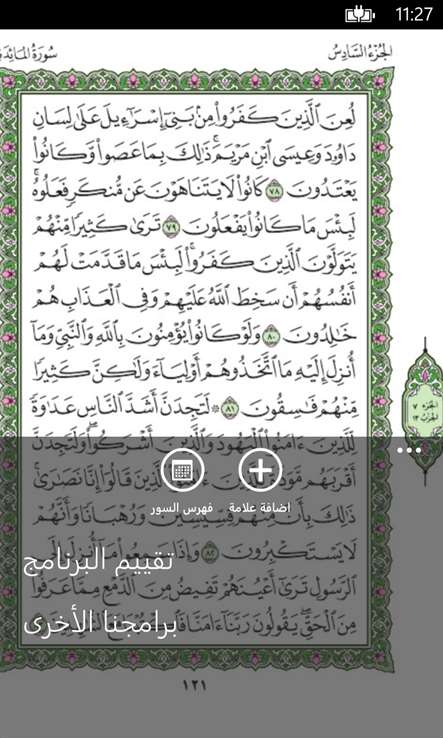 11:27
الجزء السادس
سورة المائدة
لُعِنَ ٱلَّذِينَ كَفَرُوا۟ مِنۢ بَنِىٓ إِسْرَٰٓءِيلَ عَلَىٰ لِسَانِ
دَاوُۥدَ وَعِيسَى ٱبْنِ مَرْيَمَ ۚ ذَٰلِكَ بِمَا عَصَوا۟ وَّكَانُوا۟
يَعْتَدُونَ ٧٨ كَانُوا۟ لَا يَتَنَاهَوْنَ عَن مُّنكَرٍ فَعَلُوهُ ۚ
لَبِئْسَ مَا كَانُوا۟ يَفْعَلُونَ ٧٩ تَرَىٰ كَثِيرًا مِّنْهُمْ
يَتَوَلَّوْنَ ٱلَّذِينَ كَفَرُوا۟ ۚ لَبِئْسَ مَا قَدَّمَتْ لَهُمْ
أَنفُسُهُمْ أَن سَخِطَ ٱللَّهُ عَلَيْهِمْ وَفِى ٱلْعَذَابِ هُمْ
خَٰلِدُونَ ٨٠ وَلَوْ كَانُوا۟ يُؤْمِنُونَ بِٱللَّهِ وَٱلنَّبِىِّ وَمَآ
أُنزِلَ إِلَيْهِ مَا ٱتَّخَذُوهُمْ أَوْلِيَآءَ وَلَٰكِنَّ كَثِيرًا
مِّنْهُمْ فَٰسِقُونَ ٨١ ۞ لَتَجِدَنَّ أَشَدَّ ٱلنَّاسِ عَدَٰوَةً
لِّلَّذِينَ ءَامَنُوا۟ ٱلْيَهُودَ وَٱلَّذِينَ أَشْرَكُوا۟ ۖ وَلَتَجِدَنَّ
أَقْرَبَهُم مَّوَدَّةً ٱلَّذِينَ قَالُوٓا۟ إِنَّا نَصَٰرَىٰ ۚ
ذَٰلِكَ بِأَنَّ مِنْهُمْ قِسِّيسِينَ وَرُهْبَانًا وَأَنَّهُمْ
لَا يَسْتَكْبِرُونَ ٨٢ وَإِذَا سَمِعُوا۟ مَآ أُنزِلَ إِلَى
ٱلرَّسُولِ تَرَىٰٓ أَعْيُنَهُمْ تَفِيضُ مِنَ ٱلدَّمْعِ مِمَّا عَرَفُوا۟
مِنَ ٱلْحَقِّ ۖ يَقُولُونَ رَبَّنَآ ءَامَنَّا
١٢١
الجزء ٧
الحزب ١٣
اضافة علامة
فهرس السور
تقييم البرنامج
برامجنا الأخرى